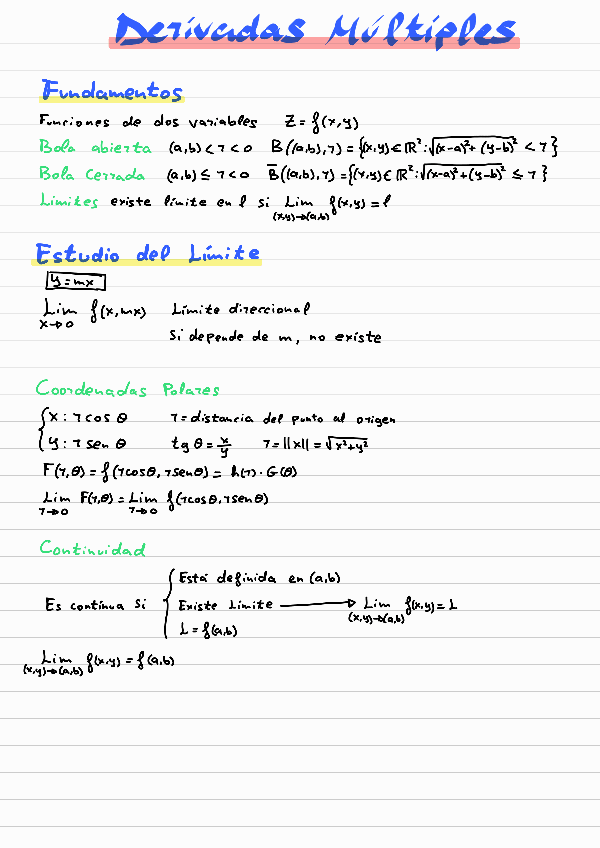 Derivadas Múltiples
Fundamentos
Funciones de dos variables Z = f(x,y)
Bola abierta (a,b) < r < 0 B((a,b),r) = {(x,y) ∈ ℝ²: √(x-a)²+(y-b)² < r}
Bola Cerrada (a,b) ≤ r < 0 B̅((a,b),r) = {(x,y) ∈ ℝ²: √(x-a)²+(y-b)² ≤ r}
Límites existe límite en l si Lim (x,y)→(a,b) f(x,y) = l
Estudio del Límite
y = mx
Lim x→0 f(x,mx) Límite direccional
Si depende de m, no existe
Coordenadas Polares
{ x: r cos θ r = distancia del punto al origen
y: r sen θ tg θ = x/y r = ||x|| = √x²+y²
F(r,θ) = f(r cos θ, r sen θ) = h(r) · G(θ)
Lim r→0 F(r,θ) = Lim r→0 f(r cos θ, r sen θ)
Continuidad
{ Está definida en (a,b)
Es continua si Existe Límite → Lim (x,y)→(a,b) f(x,y) = L
L = f(a,b)
Lim (x,y)→(a,b) f(x,y) = f(a,b)